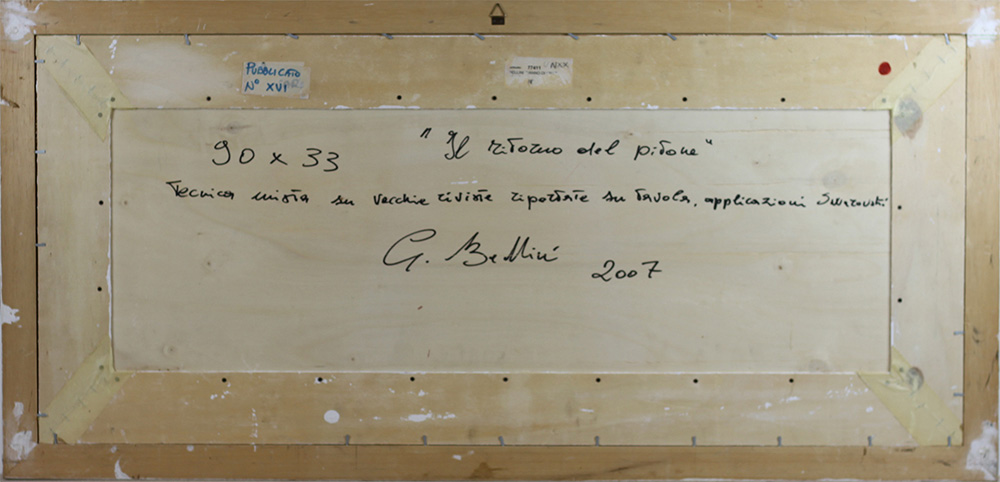 PUBBLICATO
N° XVI
90 x 33
"Il ritorno del pitone"
Tecnica mista su vecchie riviste riportate su tavola, applicazioni Swarovski
G. Bellini
2007